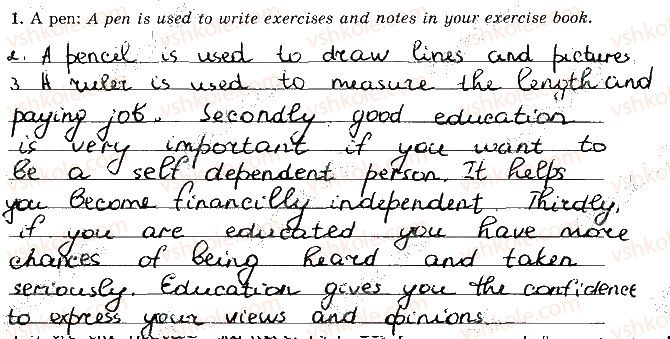 1. A pen: A pen is used to write exercises and notes in your exercise book.
2. A pencil is used to draw lines and pictures
3 A ruler is used to measure the length and
paying job. Secondly good education
is very important if you want to
be a self dependent person. It helps
you become financilly independent. Thirdly,
if you are educated you have more
chances of being heard and taken
seriously. Education gives you the confidence
to express your views and opinions.